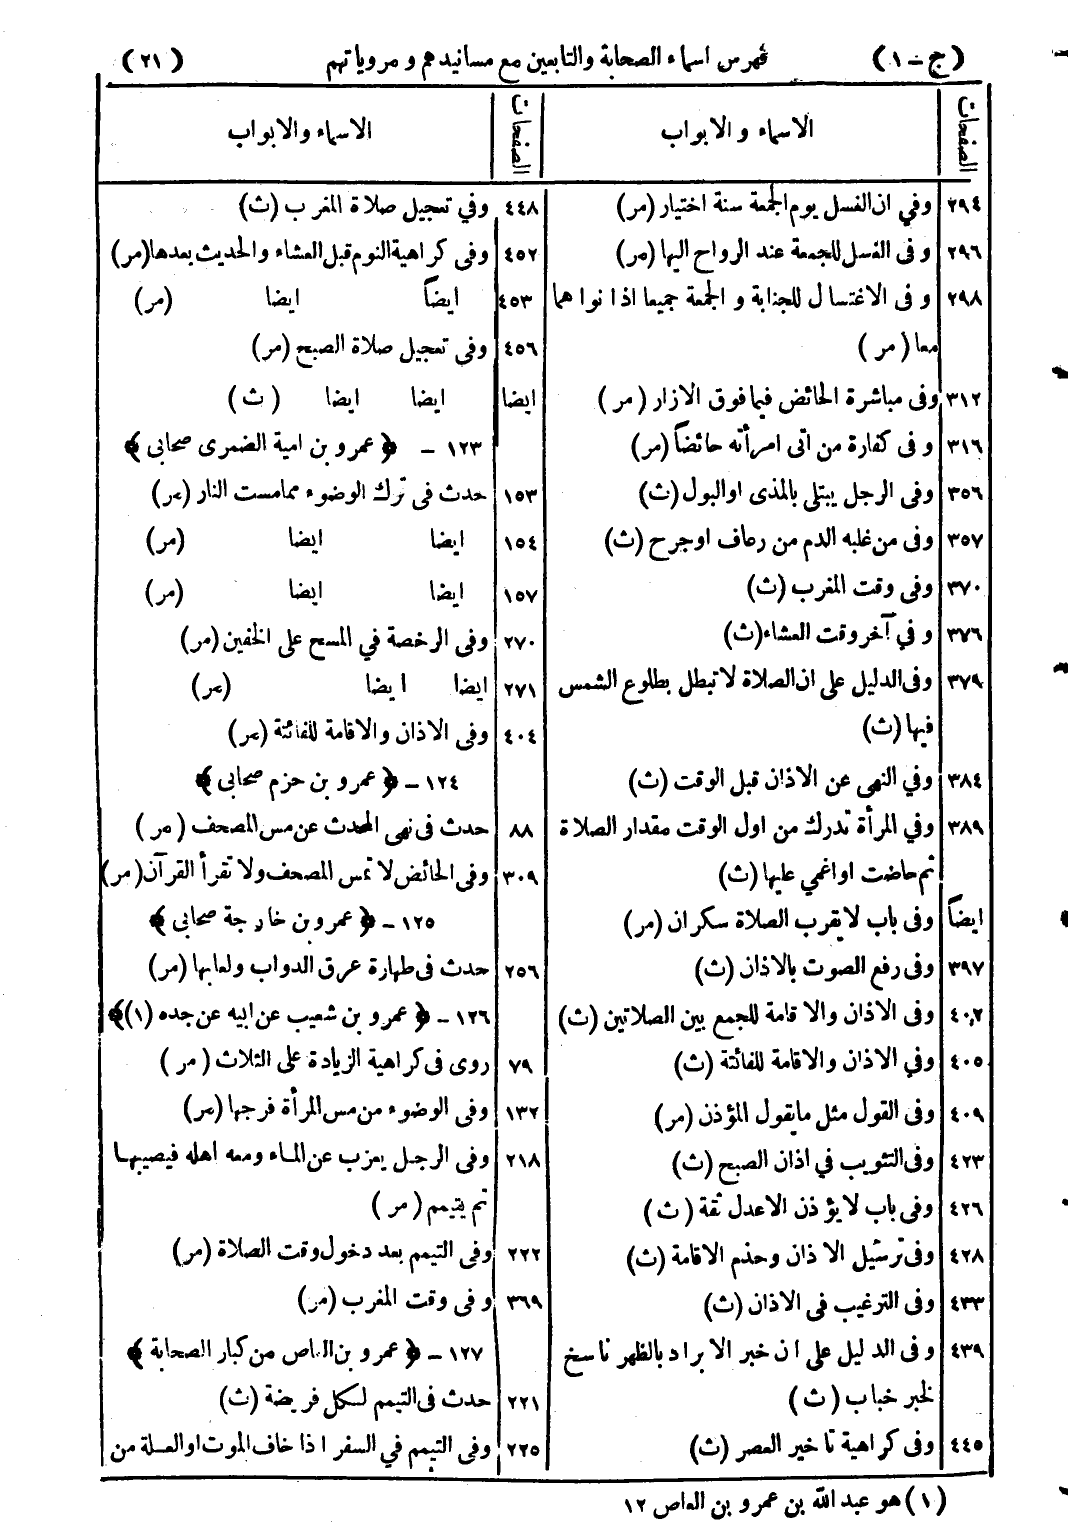 (ج - ١) فهرس اسماء الصحابة والتابعين مع مسانيدهم و مروياتهم (٢١)
الصفحات الاسماء و الابواب
٢٩٤ وفي ان الغسل يوم الجمعة سنة اختيار (مر)
٢٩٦ وفى الغسل للجمعة عند الرواح اليها (مر)
٢٩٨ و فى الاغتسال للجنابة و الجمعة جميعا اذا نواهما
معا (مر)
٣١٢ وفى مباشرة الحائض فيما فوق الازار (مر)
٣١٦ و فى كفارة من اتى امرأته حائضاً (مر)
٣٥٦ وفى الرجل يبتلى بالمذى اوالبول (ث)
٣٥٧ وفى من غلبه الدم من رعاف اوجرح (ث)
٣٧٠ وفى وقت المغرب (ث)
٣٧٦ و في آخر وقت العشاء (ث)
٣٧٩ وفى الدليل على ان الصلاة لا تبطل بطلوع الشمس
فيها (ث)
٣٨٤ وفي النهى عن الاذان قبل الوقت (ث)
٣٨٩ وفي المرأة تدرك من اول الوقت مقدار الصلاة
ثم حاضت اواغمي عليها (ث)
ايضاً وفى باب لا يقرب الصلاة سكران (مر)
٣٩٧ وفى رفع الصوت بالاذان (ث)
٤٠٢ وفى الاذان والاقامة للجمع بين الصلاتين (ث)
٤٠٥ وفي الاذان والاقامة للفائتة (ث)
٤٠٩ وفى القول مثل مايقول المؤذن (مر)
٤٢٣ وفى التثويب في اذان الصبح (ث)
٤٢٦ وفى باب لا يؤذن الاعدل ثقة (ث)
٤٢٨ وفى ترسيل الاذان وحذم الاقامة (ث)
٤٣٣ وفى الترغيب فى الاذان (ث)
٤٣٩ وفى الدليل على ان خبر الابراد بالظهر ناسخ
لخبر خباب (ث)
٤٤٥ وفى كراهية تاخير العصر (ث)
الصفحات الاسماء والابواب
٤٤٨ وفي تعجيل صلاة المغرب (ث)
٤٥٢ وفى كراهية النوم قبل العشاء والحديث بعدها (مر)
٤٥٣ ايضاً ايضا (مر)
٤٥٦ وفى تعجيل صلاة الصبح (مر)
ايضا ايضا ايضا (ث)
١٢٣ - ﴿ عمرو بن امية الضمرى صحابى ﴾
١٥٣ حدث فى ترك الوضوء ممامست النار (مر)
١٥٤ ايضا ايضا (مر)
١٥٧ ايضا ايضا (مر)
٢٧٠ وفى الرخصة في المسح على الخفين (مر)
٢٧١ ايضا ايضا (مر)
٤٠٤ وفى الاذان والاقامة للفائتة (مر)
١٢٤ - ﴿ عمرو بن حزم صحابى ﴾
٨٨ حدث فى نهى المحدث عن مس المصحف (مر)
٣٠٩ وفى الحائض لا تمس المصحف ولا تقرأ القرآن (مر)
١٢٥ - ﴿ عمرو بن خارجة صحابى ﴾
٢٥٦ حدث فى طهارة عرق الدواب ولعابها (مر)
١٢٦ - ﴿ عمرو بن شعيب عن ابيه عن جده (١)﴾
٧٩ روى فى كراهية الزيادة على الثلاث (مر)
١٣٢ وفى الوضوء من مس المرأة فرجها (مر)
٢١٨ وفى الرجل يعزب عن الماء ومعه اهله فيصيبها
ثم يتيمم (مر)
٢٢٢ وفى التيمم بعد دخول وقت الصلاة (مر)
٣٦٩ وفى وقت المغرب (مر)
١٢٧ - ﴿ عمرو بن العاص من كبار الصحابة ﴾
٢٢١ حدث فى التيمم لكل فريضة (ث)
٢٢٥ وفى التيمم في السفر اذا خاف الموت اوالعلة من
(١) هو عبد الله بن عمرو بن العاص ١٢